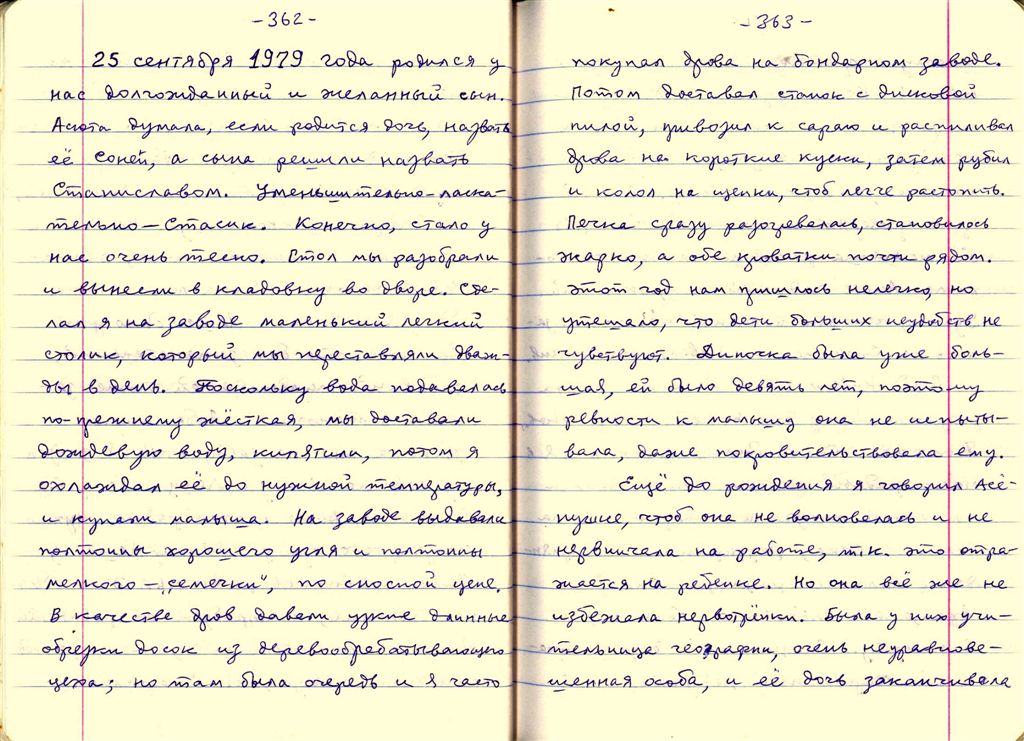 -362-
25 сентября 1979 года родился у
нас долгожданный и желанный сын.
Асюта думала, если родится дочь, назвать
её Соней, а сына решили назвать
Станиславом. Уменьшительно-ласка-
тельно — Стасик. Конечно, стало у
нас очень тесно. Стол мы разобрали
и вынесли в кладовку во дворе. Сде-
лал я на заводе маленький легкий
столик, который мы переставляли дваж-
ды в день. Поскольку вода подавалась
по-прежнему жёсткая, мы доставали
дождевую воду, кипятили, потом я
охлаждал её до нужной температуры,
и купали малыша. На заводе выдавали
полтонны хорошего угля и полтонны
мелкого — „семечки", по сносной цене.
В качестве дров давали узкие длинные
обрезки досок из деревообрабатывающего
цеха; но там была очередь и я часто
-363-
покупал дрова на бондарном заводе.
Потом доставал станок с дисковой
пилой, привозил к сараю и распиливал
дрова на короткие куски, затем рубил
и колол на щепки, чтоб легче растопить.
Печка сразу разогревалась, становилось
жарко, а обе кроватки почти рядом.
Этот год нам пришлось нелегко, но
утешало, что дети больших неудобств не
чувствуют. Диночка была уже боль-
шая, ей было девять лет, поэтому
ревности к малышу она не испыты-
вала, даже покровительствовала ему.
Ещё до рождения я говорил Асё-
нушке, чтоб она не волновалась и не
нервничала на работе, т.к. это отра-
жается на ребенке. Но она всё же не
избежала нервотрёпки. Была у них учи-
тельница географии, очень неуравнове-
шенная особа, и её дочь заканчивала